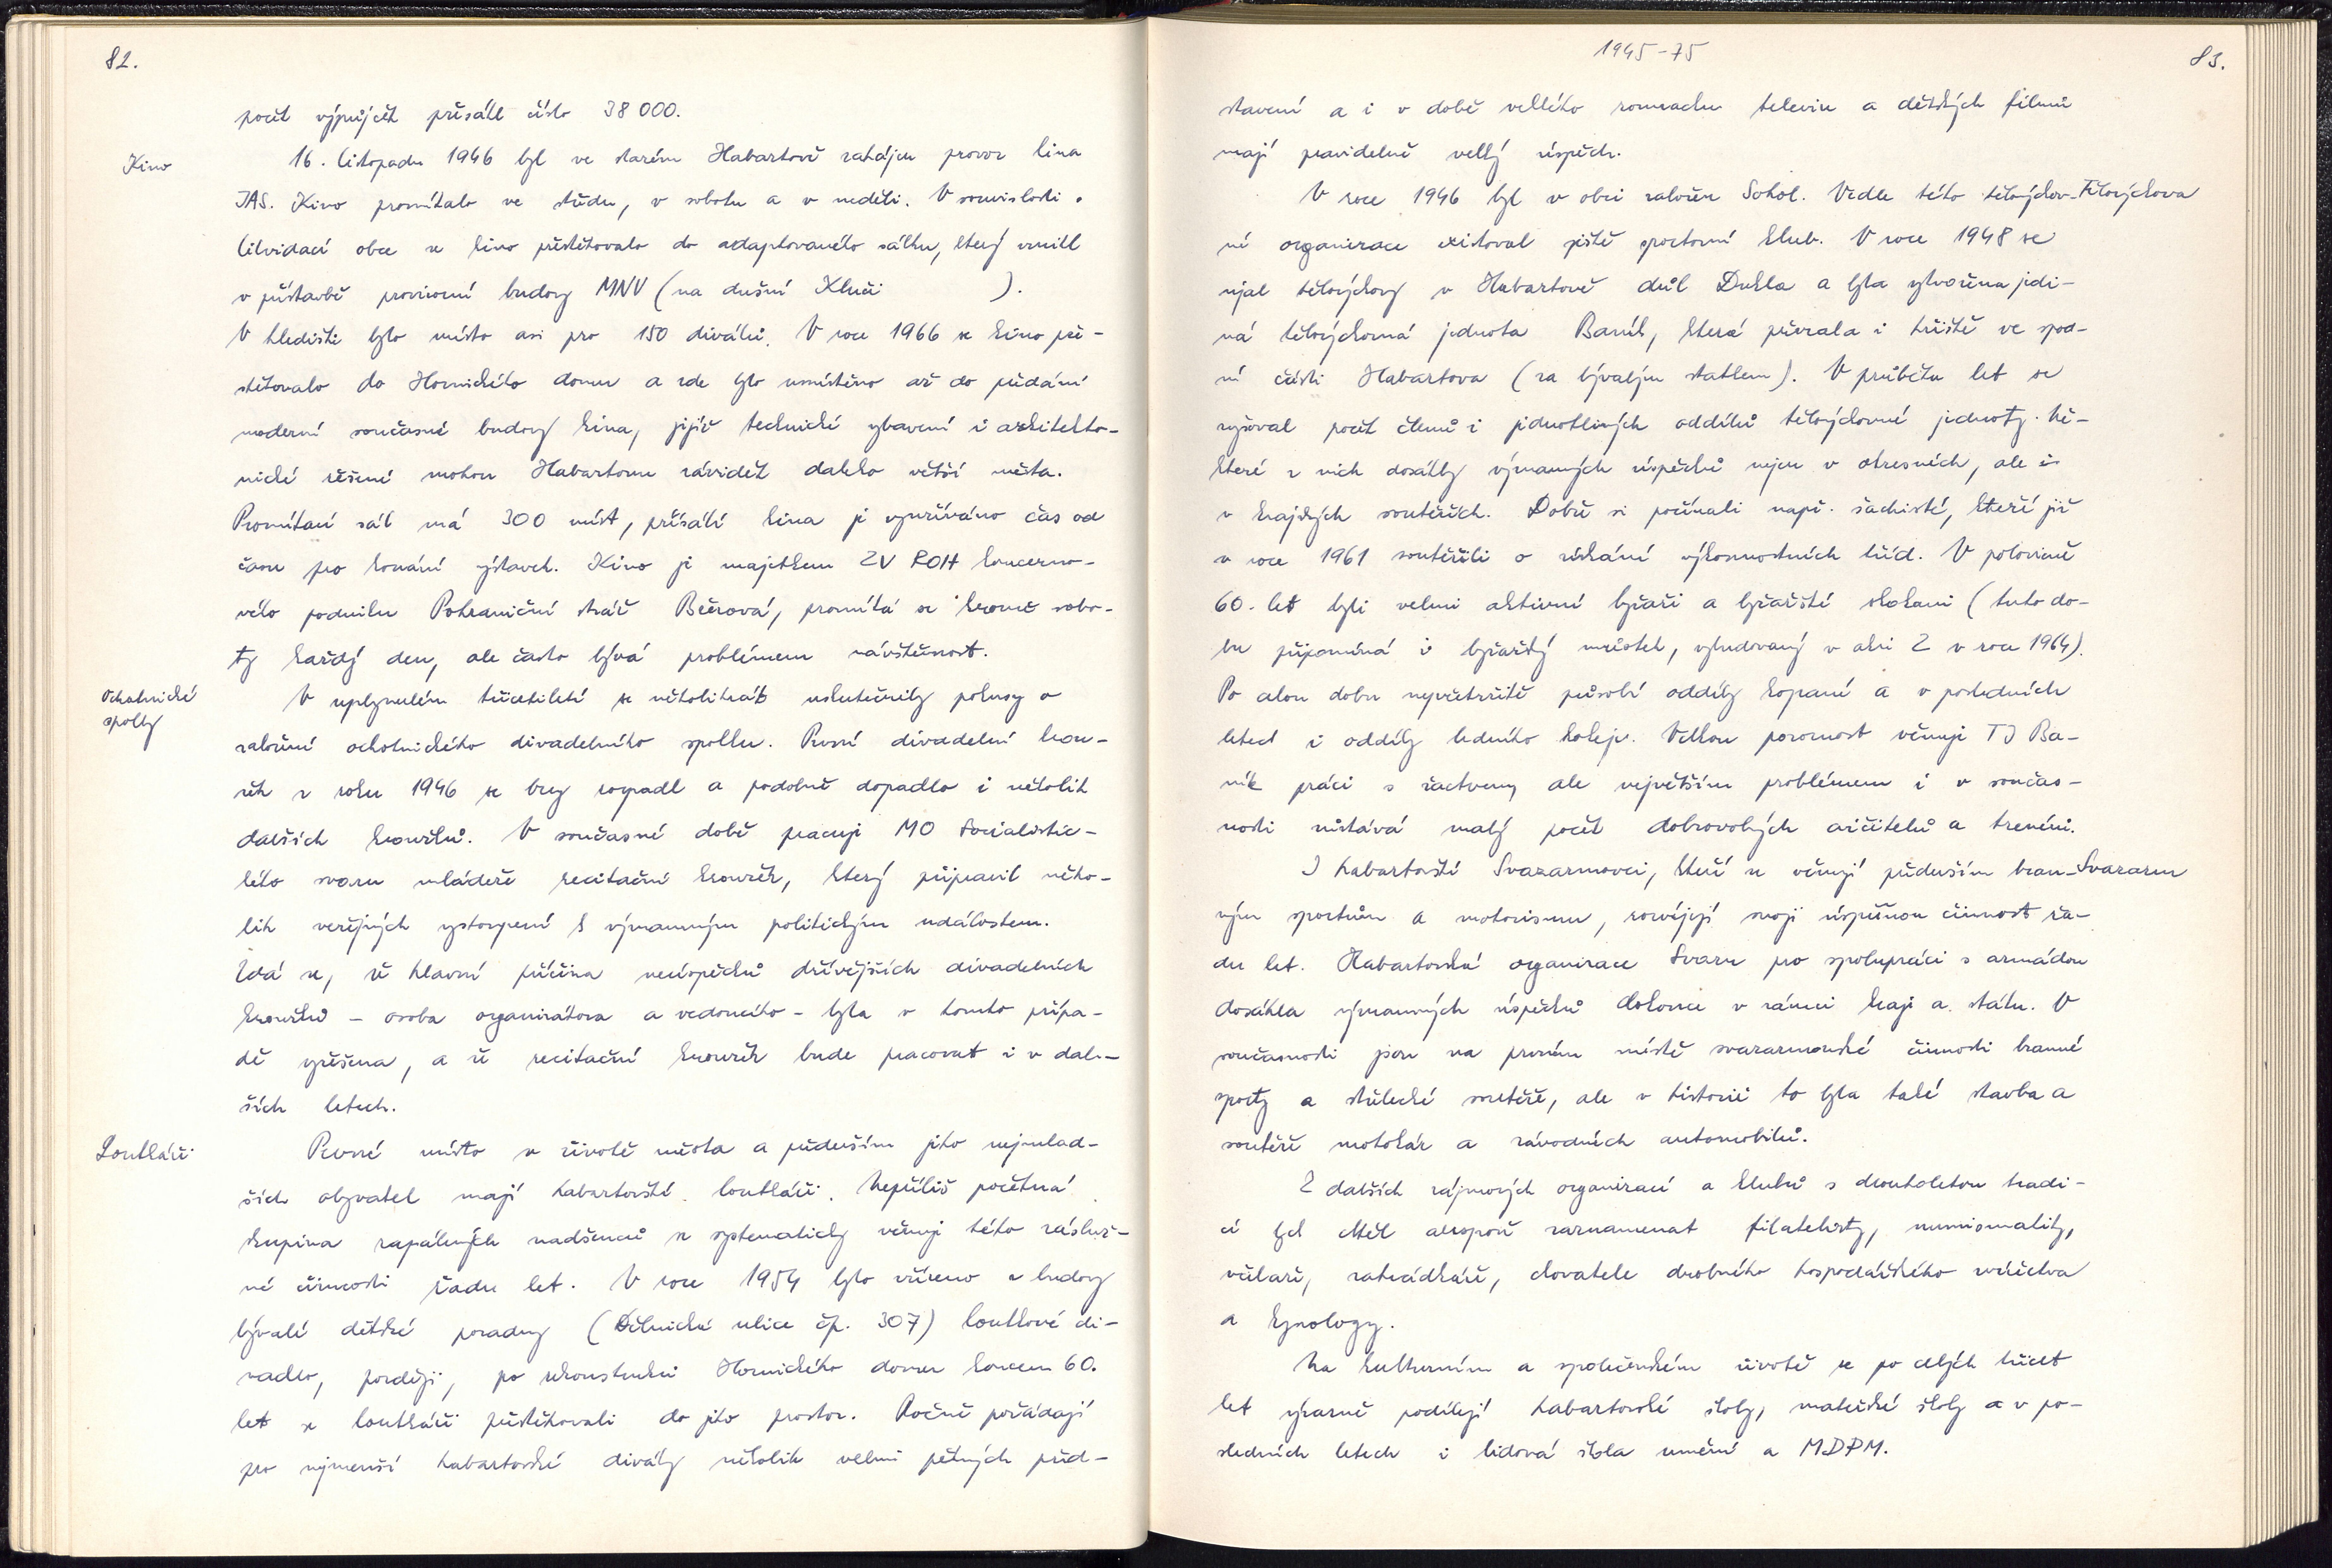 82.
počet výpůjček přesáhl číslo 38 000.
Kino
16. listopadu 1946 byl ve starém Habartově zahájen provoz kina
JAS. Kino promítalo ve středu, v sobotu a v neděli. V souvislosti s
likvidací obce se kino přestěhovalo do adaptovaného sálku, který vznikl
v přístavbě provizorní budovy MNV (na dnešní Kluči ).
V hledišti bylo místo asi pro 150 diváků. V roce 1966 se kino pře-
stěhovalo do Hornického domu a zde bylo umístěno až do předání
moderní současné budovy kina, jejíž technické vybavení i architekto-
nické řešení mohou Habartovu závidět daleko větší města.
Promítací sál má 300 míst, přísálí kina je využíváno čas od
času pro konání výstavek. Kino je majetkem ZV ROH koncerno-
vého podniku Pohraniční stráž Březová, promítá se kromě sobo-
ty každý den, ale často bývá problémem návštěvnost.
Ochotnické
spolky
V uplynulém třicetiletí se několikrát uskutečnily pokusy o
založení ochotnického divadelního spolku. První divadelní krou-
žek z roku 1946 se brzy rozpadl a podobně dopadlo i několik
dalších kroužků. V současné době pracuje MO Socialistic-
kého svazu mládeže recitační kroužek, který připravil něko-
lik veřejných vystoupení k významným politickým událostem.
Zdá se, že hlavní příčina neúspěchů dřívějších divadelních
kroužků - osoba organizátora a vedoucího - byla v tomto přípa-
dě vyřešena, a že recitační kroužek bude pracovat i v dal-
ších letech.
Loutkáři
Pevné místo v životě města a především jeho nejmlad-
ších obyvatel mají habartovští loutkáři. Nepříliš početná
skupina zapálených nadšenců se systematicky věnuje této záslуž-
né činnosti řadu let. V roce 1954 bylo zřízeno v budovy
bývalé dětské poradny (Dělnická ulice čp. 307) loutkové di-
vadlo, později, po rekonstrukci Hornického domu koncem 60.
let se loutkáři přestěhovali do jeho prostor. Ročně pořádají
pro nejmenší habartovské diváky několik velmi pěkných před-
1945-75
83.
stavení a i v době velkého rozmachu televize a dětských filmů
mají pravidelně velký úspěch.
V roce 1946 byl v obci založen Sokol. Vedle této tělovýchov-
Tělovýchova
né organizace existoval ještě sportovní klub. V roce 1948 se
ujal tělovýchovy v Habartově důl Dukla a byla vytvořena jedi-
ná tělovýchovná jednota Baník, která převzala i hřiště ve spod-
ní části Habartova (za bývalým statkem). V průběhu let se
zvyšoval počet členů i jednotlivých oddílů tělovýchovné jednoty. Ně-
které z nich dosáhly významných úspěchů nejen v okresních, ale i
v krajských soutěžích. Dobře si počínali např. šachisté, kteří již
v roce 1961 soutěžili o získání výkonnostních tříd. V polovině
60. let byli velmi aktivní lyžaři a lyžařští skokani (tuto do-
bu připomíná i lyžařský můstek, vybudovaný v akci Z v roce 1964).
Po celou dobu nepřetržitě působí oddíly kopané a v posledních
letech i oddíly ledního hokeje. Velkou pozornost věnuje TJ Ba-
ník práci s žactvem, ale největším problémem i v součas-
nosti zůstává malý počet dobrovolných cvičitelů a trenérů.
I habartovští Svazarmovci, kteří se věnují především bran-
Svazarm
ným sportům a motorismu, rozvíjejí svoji úspěšnou činnost řa-
du let. Habartovská organizace Svazu pro spolupráci s armádou
dosáhla významných úspěchů dokonce v rámci kraje a státu. V
současnosti jsou na prvním místě svazarmovské činnosti branné
sporty a střelecké soutěže, ale v historii to byla také stavba a
soutěže motokár a závodních automobilů.
Z dalších zájmových organizací a klubů s dlouholetou tradi-
cí bych chtěl alespoň zaznamenat filatelisty, numismatiky,
včelaře, zahrádkáře, chovatele drobného hospodářského zvířectva
a kynology.
Na kulturním a společenském životě se po celých třicet
let výrazně podílejí habartovské školy, mateřské školy a v po-
sledních letech i lidová škola umění a MDPM.